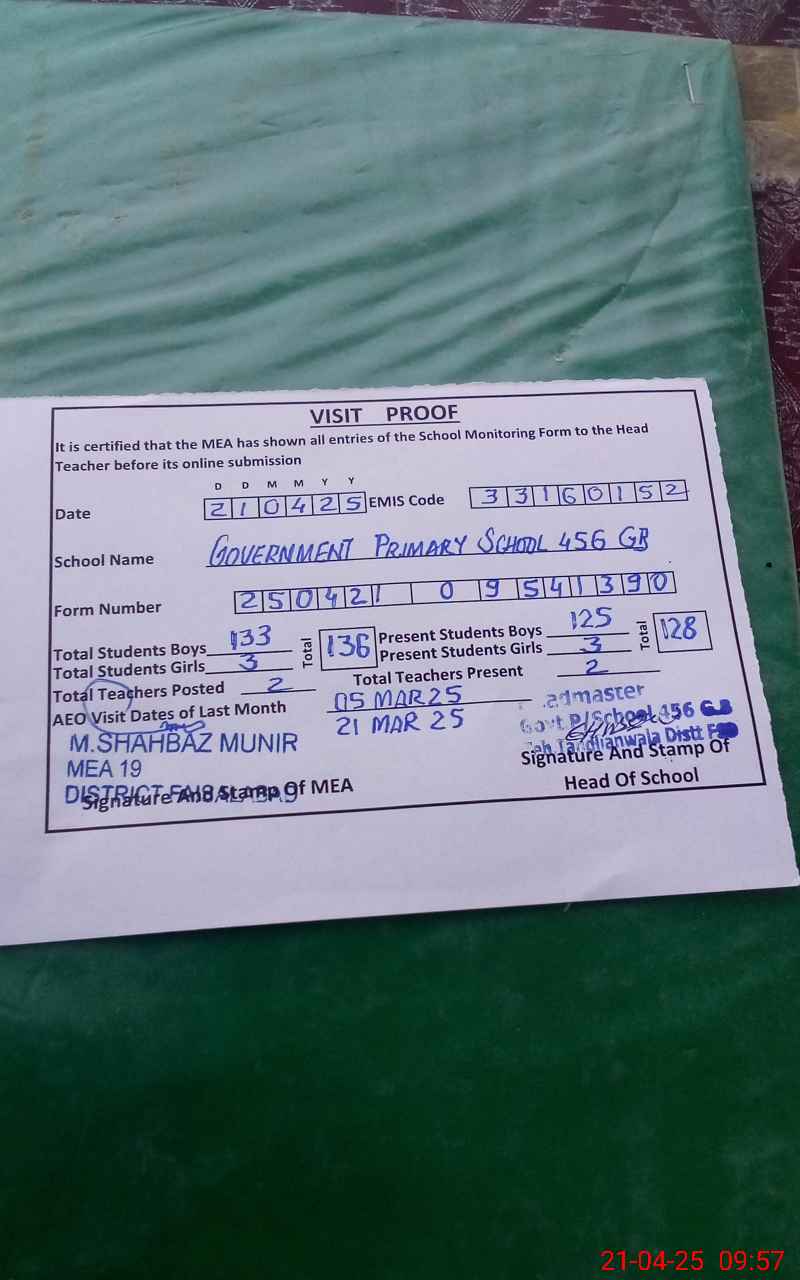 VISIT PROOF
It is certified that the MEA has shown all entries of the School Monitoring Form to the Head
Teacher before its online submission
D D M M Y Y
Date 210425 EMIS Code 33160152
School Name GOVERNMENT PRIMARY SCHOOL 456 GB
Form Number 250421 09541390
Total Students Boys 133 Total 136 Present Students Boys 125 Total 128
Total Students Girls 3 Present Students Girls 3
Total Teachers Posted 2 Total Teachers Present 2
AEO Visit Dates of Last Month 05 MAR 25
21 MAR 25
M.SHAHBAZ MUNIR
MEA 19
DISTRICT FAISALABAD
Signature And Stamp Of MEA
Govt P/School 456 G.B
Tandlianwala Distt
Signature And Stamp Of
Head Of School
21-04-25 09:57